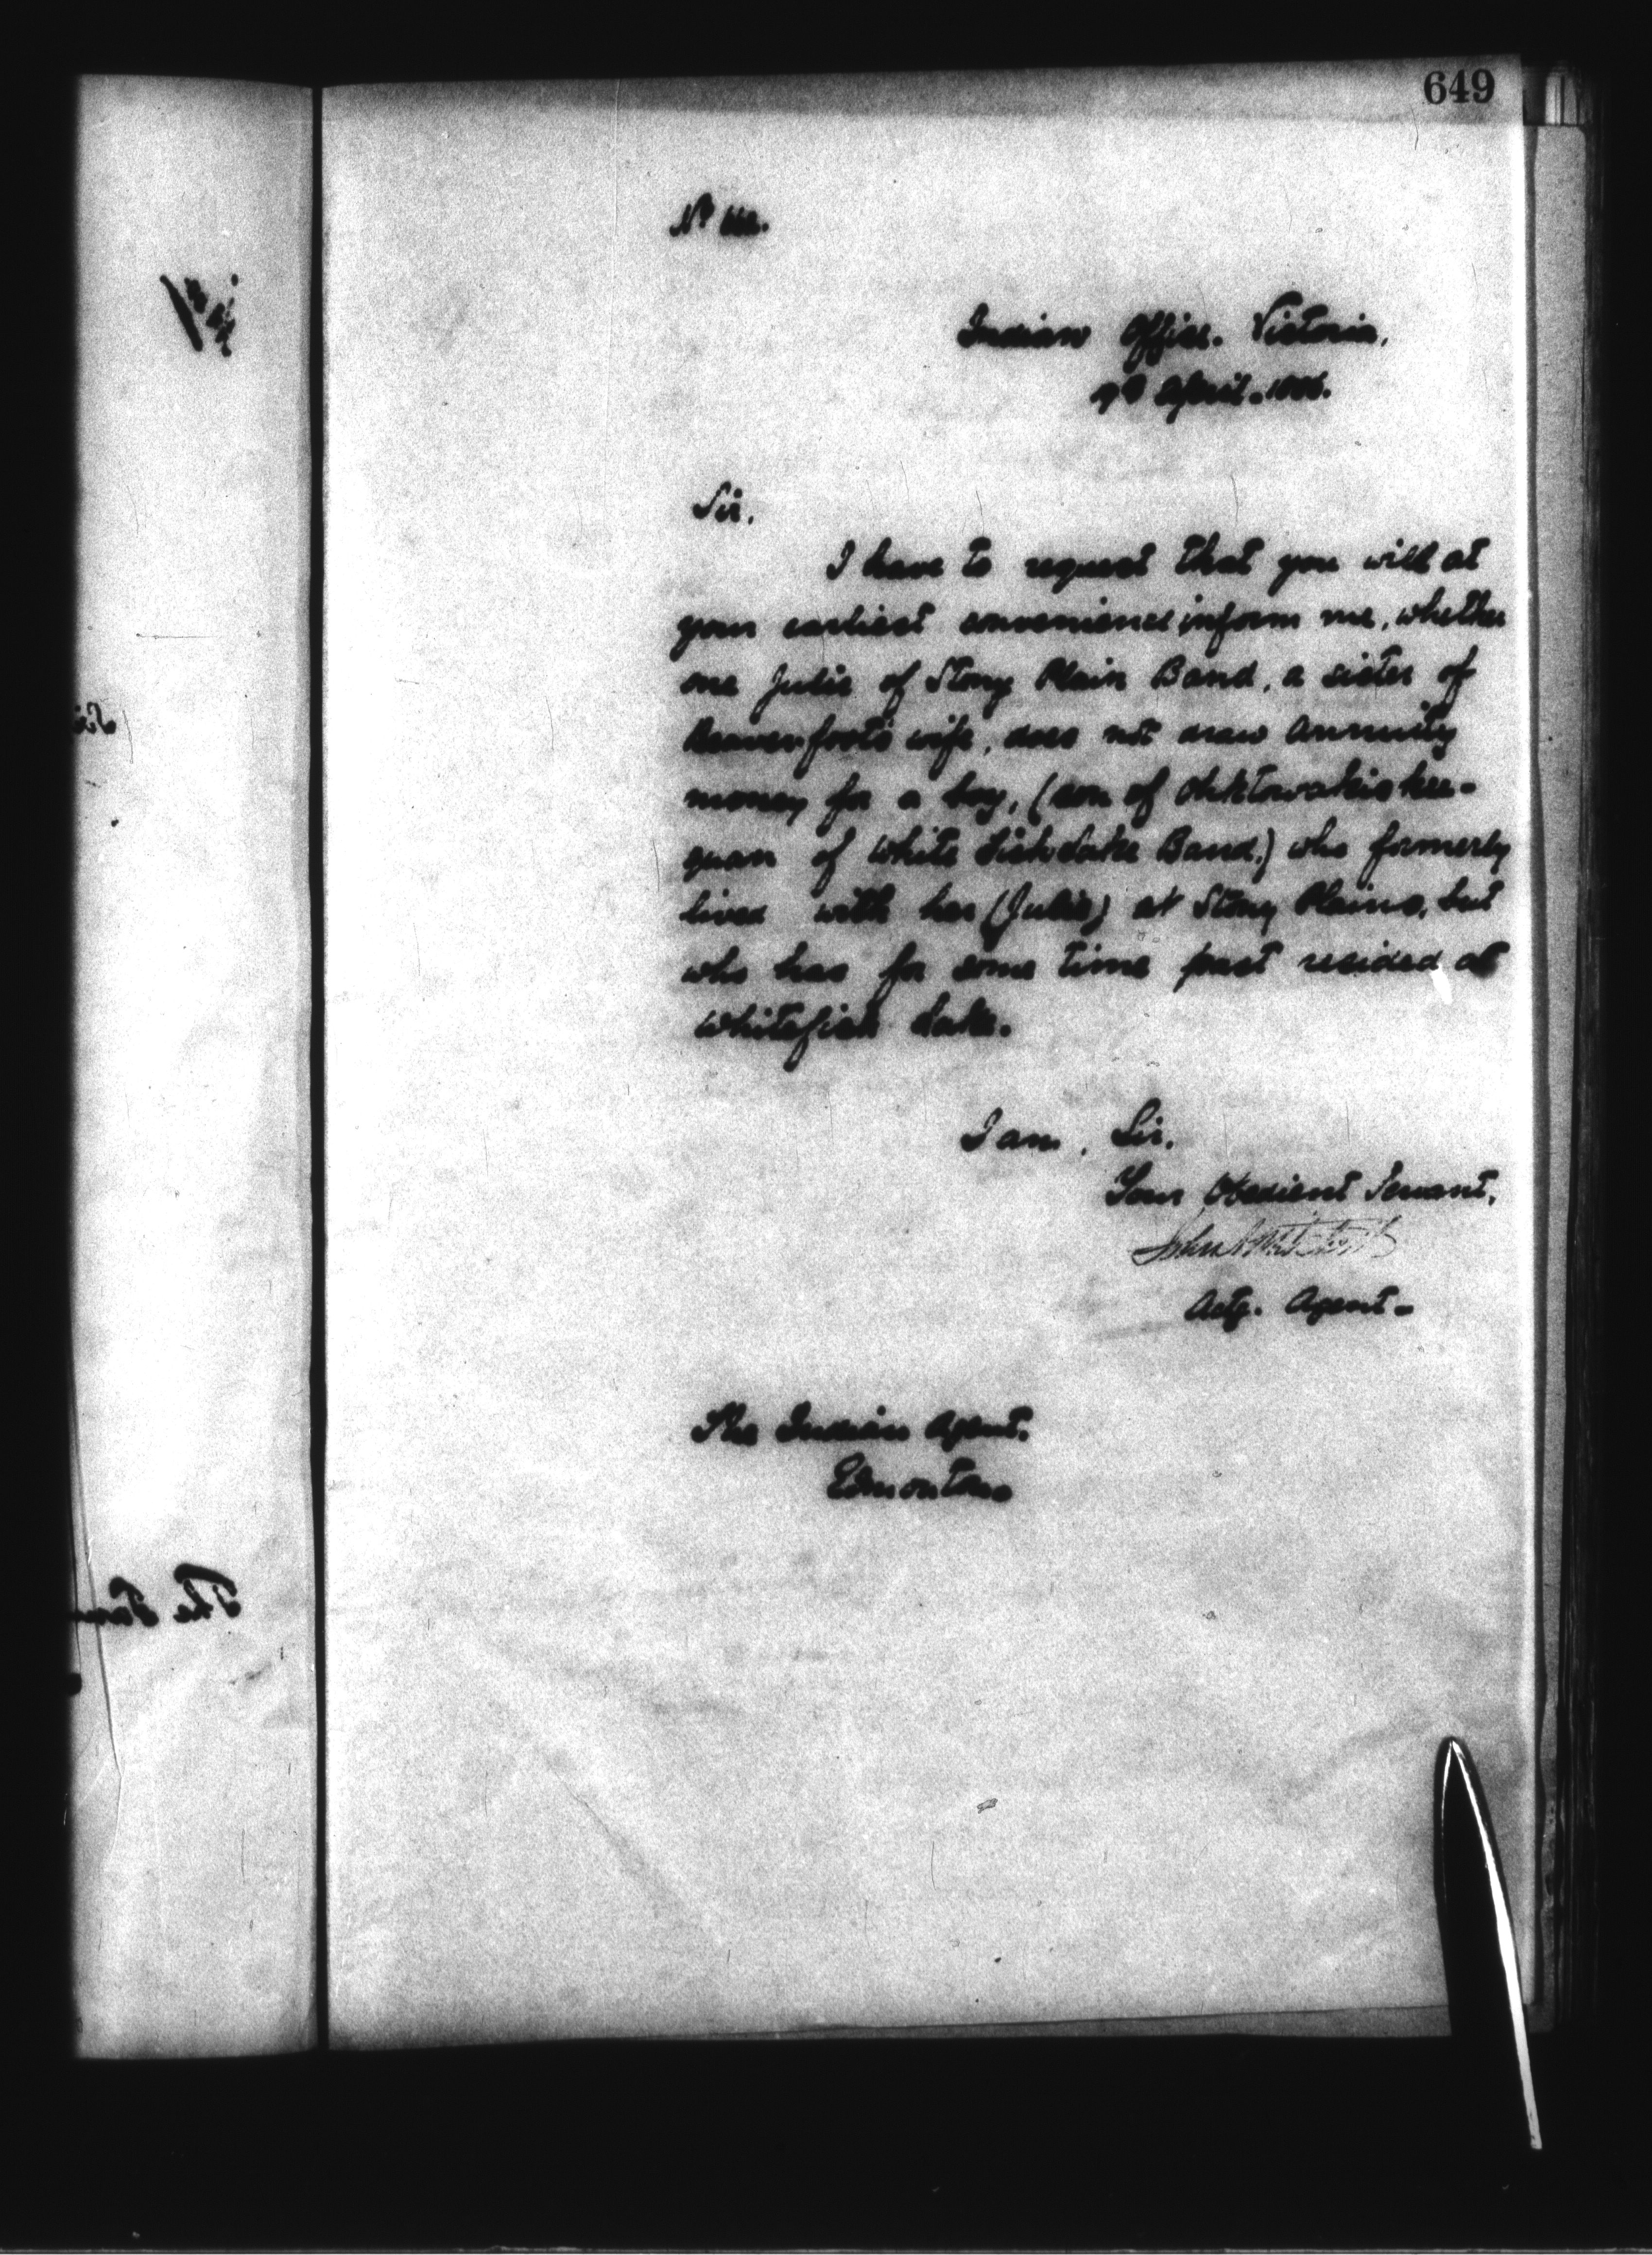 649
Nº
Indian Office. Victoria,
April. 1886.
Sir,
I have to request that you will at
your earliest convenience inform me, whether
one Julie of Stony Plain Band, a sister of
Beaver foot's wife, does not draw Annuity
money for a boy, (son of
of White Fish Lake Band,) who formerly
lived with her (Julie) at Stony Plains, but
who has for some time past resided at
Whitefish Lake.
I am, Sir,
Your Obedient Servant,
John
Actg. Agent.
The Indian Agent.
Edmonton
The